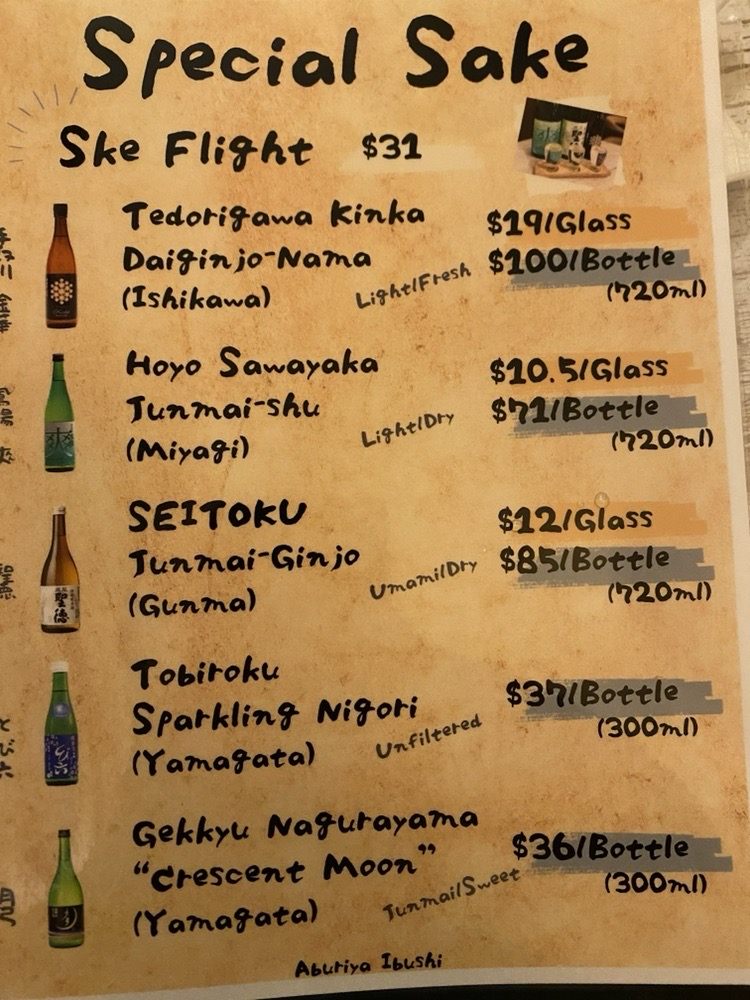 Special Sake
Ske Flight $31
Tedorigawa Kinka $19/Glass
Daiginjo-Nama Light/Fresh $100/Bottle
(Ishikawa) (720ml)
Hoyo Sawayaka $10.5/Glass
Junmai-shu Light/Dry $71/Bottle
(Miyagi) (720ml)
SEITOKU $12/Glass
Junmai-Ginjo Umami/Dry $85/Bottle
(Gunma) (720ml)
聖徳
Tobiroku $37/Bottle
Sparkling Nigori Unfiltered (300ml)
(Yamagata)
とび六
Gekkyu Nagurayama $36/Bottle
"Crescent Moon" (300ml)
(Yamagata) Junmai/Sweet
Aburiya Ibushi